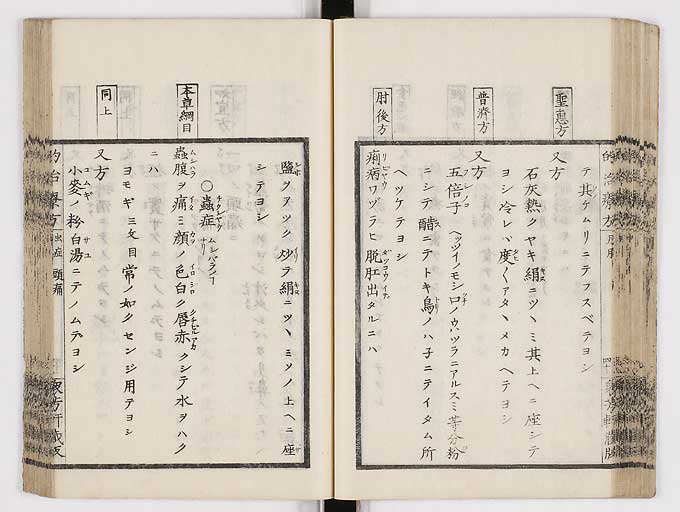 聖惠方
普濟方
肘後方
テ其ケムリニテフスベテヨシ
又方
石灰熱クヤキ絹ニツヽミ其上ヘニ座シテ
ヨシ冷レバ度〱アタヽメカヘテヨシ
又方
五倍子 ヘッツイノモシロノウヅラニアルスミ等分粉
ニシテ醋ニテトキ鳥ノハ子ニテイタム所
ヘツケテヨシ
痢病ワヅラヒ脱肛出タルニハ
本草綱目
同上
鹽ヲアツク炒テ絹ニツヽミソノ上ヘニ座
シテヨシ
〇蟲症 ムシハラノ
蟲腹ヲ痛ミ顔ノ色白ク唇赤クシテ水ヲハク
ニハ
ヨモギ三文目常ノ如クセンジ用テヨシ
又方
小麥ノ粉白湯ニテノムテヨシ
蟲症 頭痛